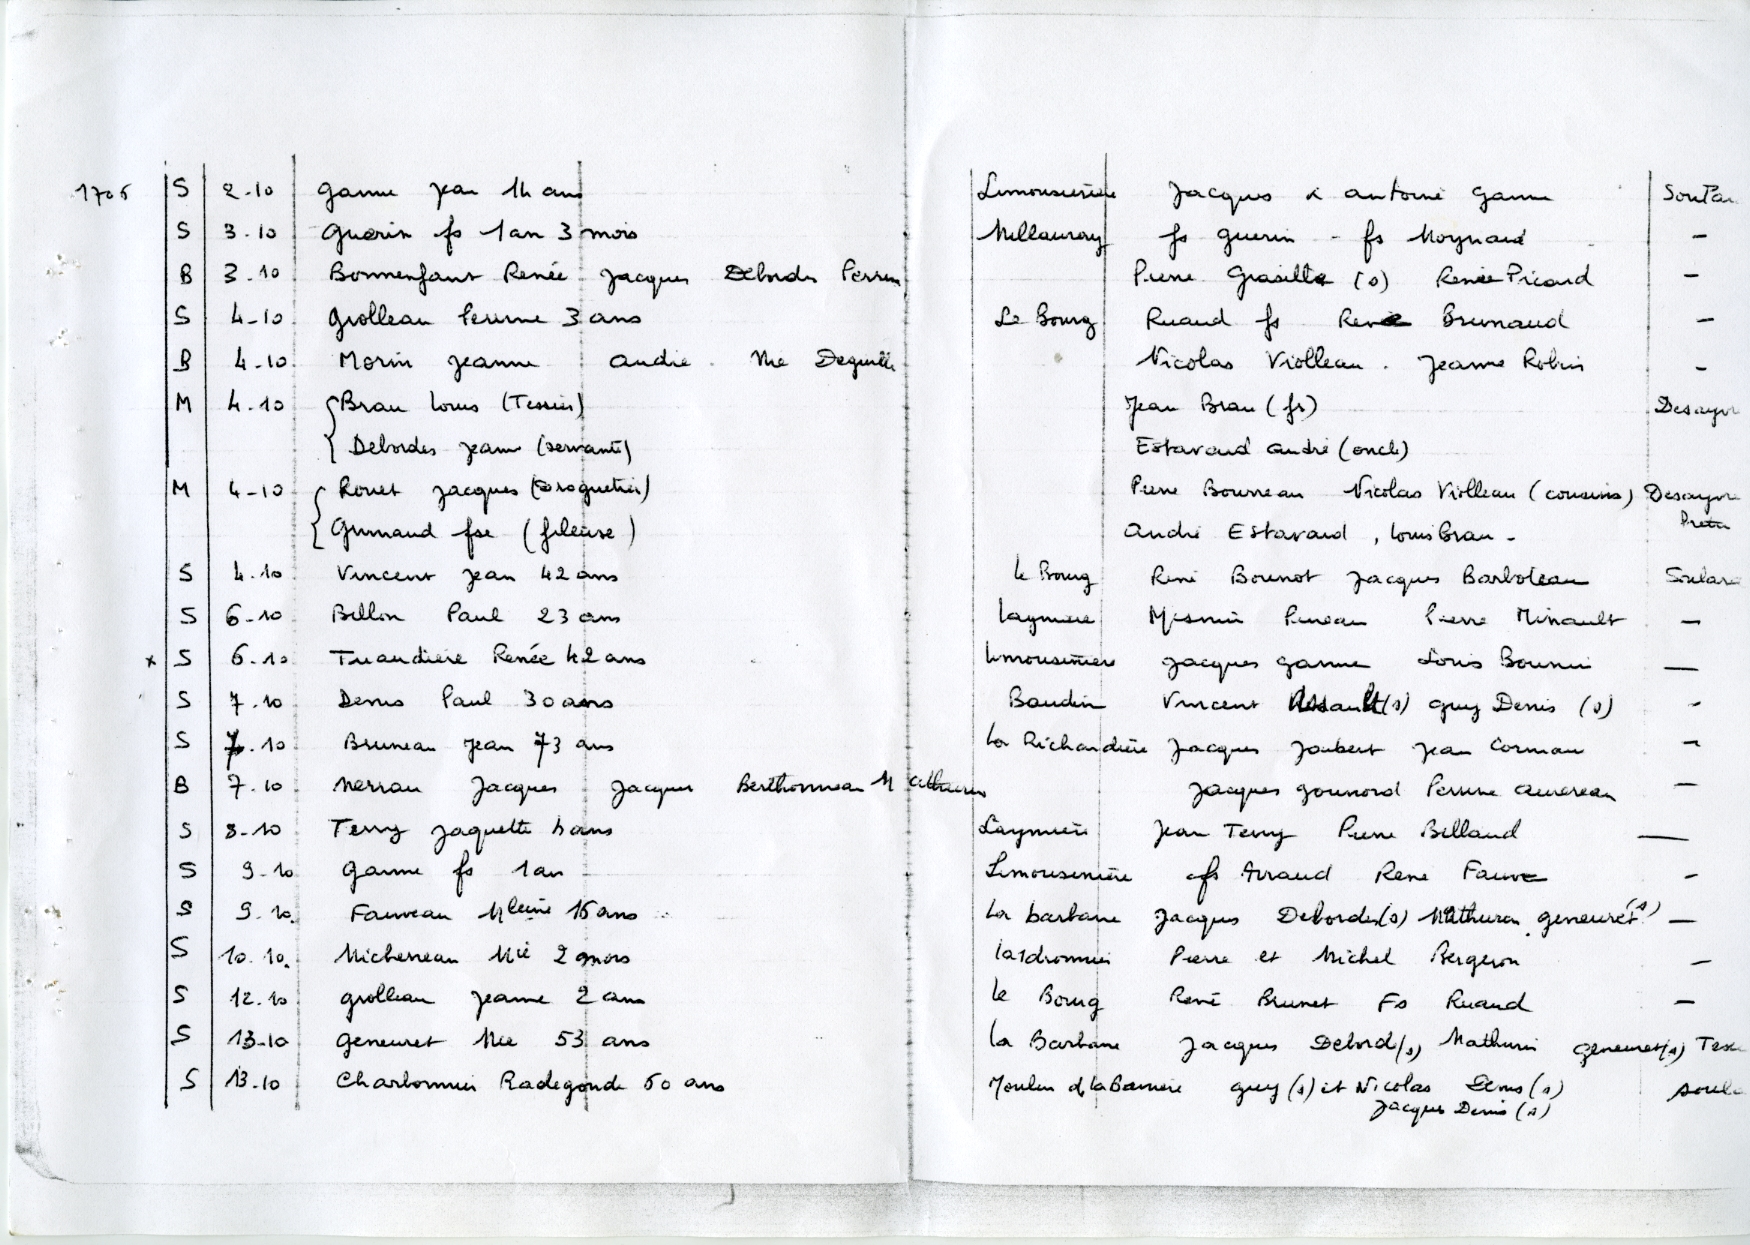 1705 S 2.10 Ganne Jean 14 ans Limousinière Jacques & Antoine Ganne
S 3.10 Guerin fs 1 an 3 mois Millauroy fs Guerin - fs Moynard -
B 3.10 Bonnenfant Renée Jacques Debordes Perrine Pierre Grasille (s) Renée Picard -
S 4-10 Grolleau Perrine 3 ans Le Bourg Ruaud fs René Brunaud -
B 4.10 Morin Jeanne André. Mie Dequille Nicolas Violleau. Jeanne Robin -
M 4.10 Brau Louis (Tessier) Jean Brau (fs) Desayvr
Debordes Jeanne (servante) Estavard André (oncle)
M 4-10 Rouet Jacques (droguetier) Pierre Bourreau Nicolas Violleau (cousins) Desayvre
Grimaud fse (fileuse) André Estavard, Louis Brau -
S 4.10 Vincent Jean 42 ans le Bourg René Bounot Jacques Barboteau
S 6-10 Billon Paul 23 ans Laymiere Mesmin Pineau Pierre Minault -
x S 6.10 Tuaudière Renée 42 ans Limousinière Jacques Ganne Louis
S 7.10 Denis Paul 30 ans Baudin Vincent (s) Guy Denis (s) -
S 7.10 Bruneau Jean 73 ans La Richardière Jacques Joubert Jean Corman -
B 7.10 Jacques Jacques Berthonneau Mathurine Jacques Gounord Perrine -
S 8-10 Terry Jaquette 4 ans Laymière Jean Terry Pierre Billaud -
S 9-10 Ganne fs 1 an Limousinière fs Airaud René Fauve -
S 9.10. Fauveau Mleine 15 ans La barbane Jacques Debordes(s) Mathurin Geneuret (s) -
S 10.10. Micheneau Mie 2 mois Pierre et Michel Bergeron -
S 12.10 Grolleau Jeanne 2 ans le Bourg René Brunet Fs Ruaud -
S 13-10 Geneuret Mie 53 ans La Barbane Jacques Debord(s) Mathurin Geneuret(s)
S 13.10 Charbonnier Radegonde 60 ans Moulin d la Barriere Guy (s) et Nicolas Denis (s)
Jacques Denis (s)